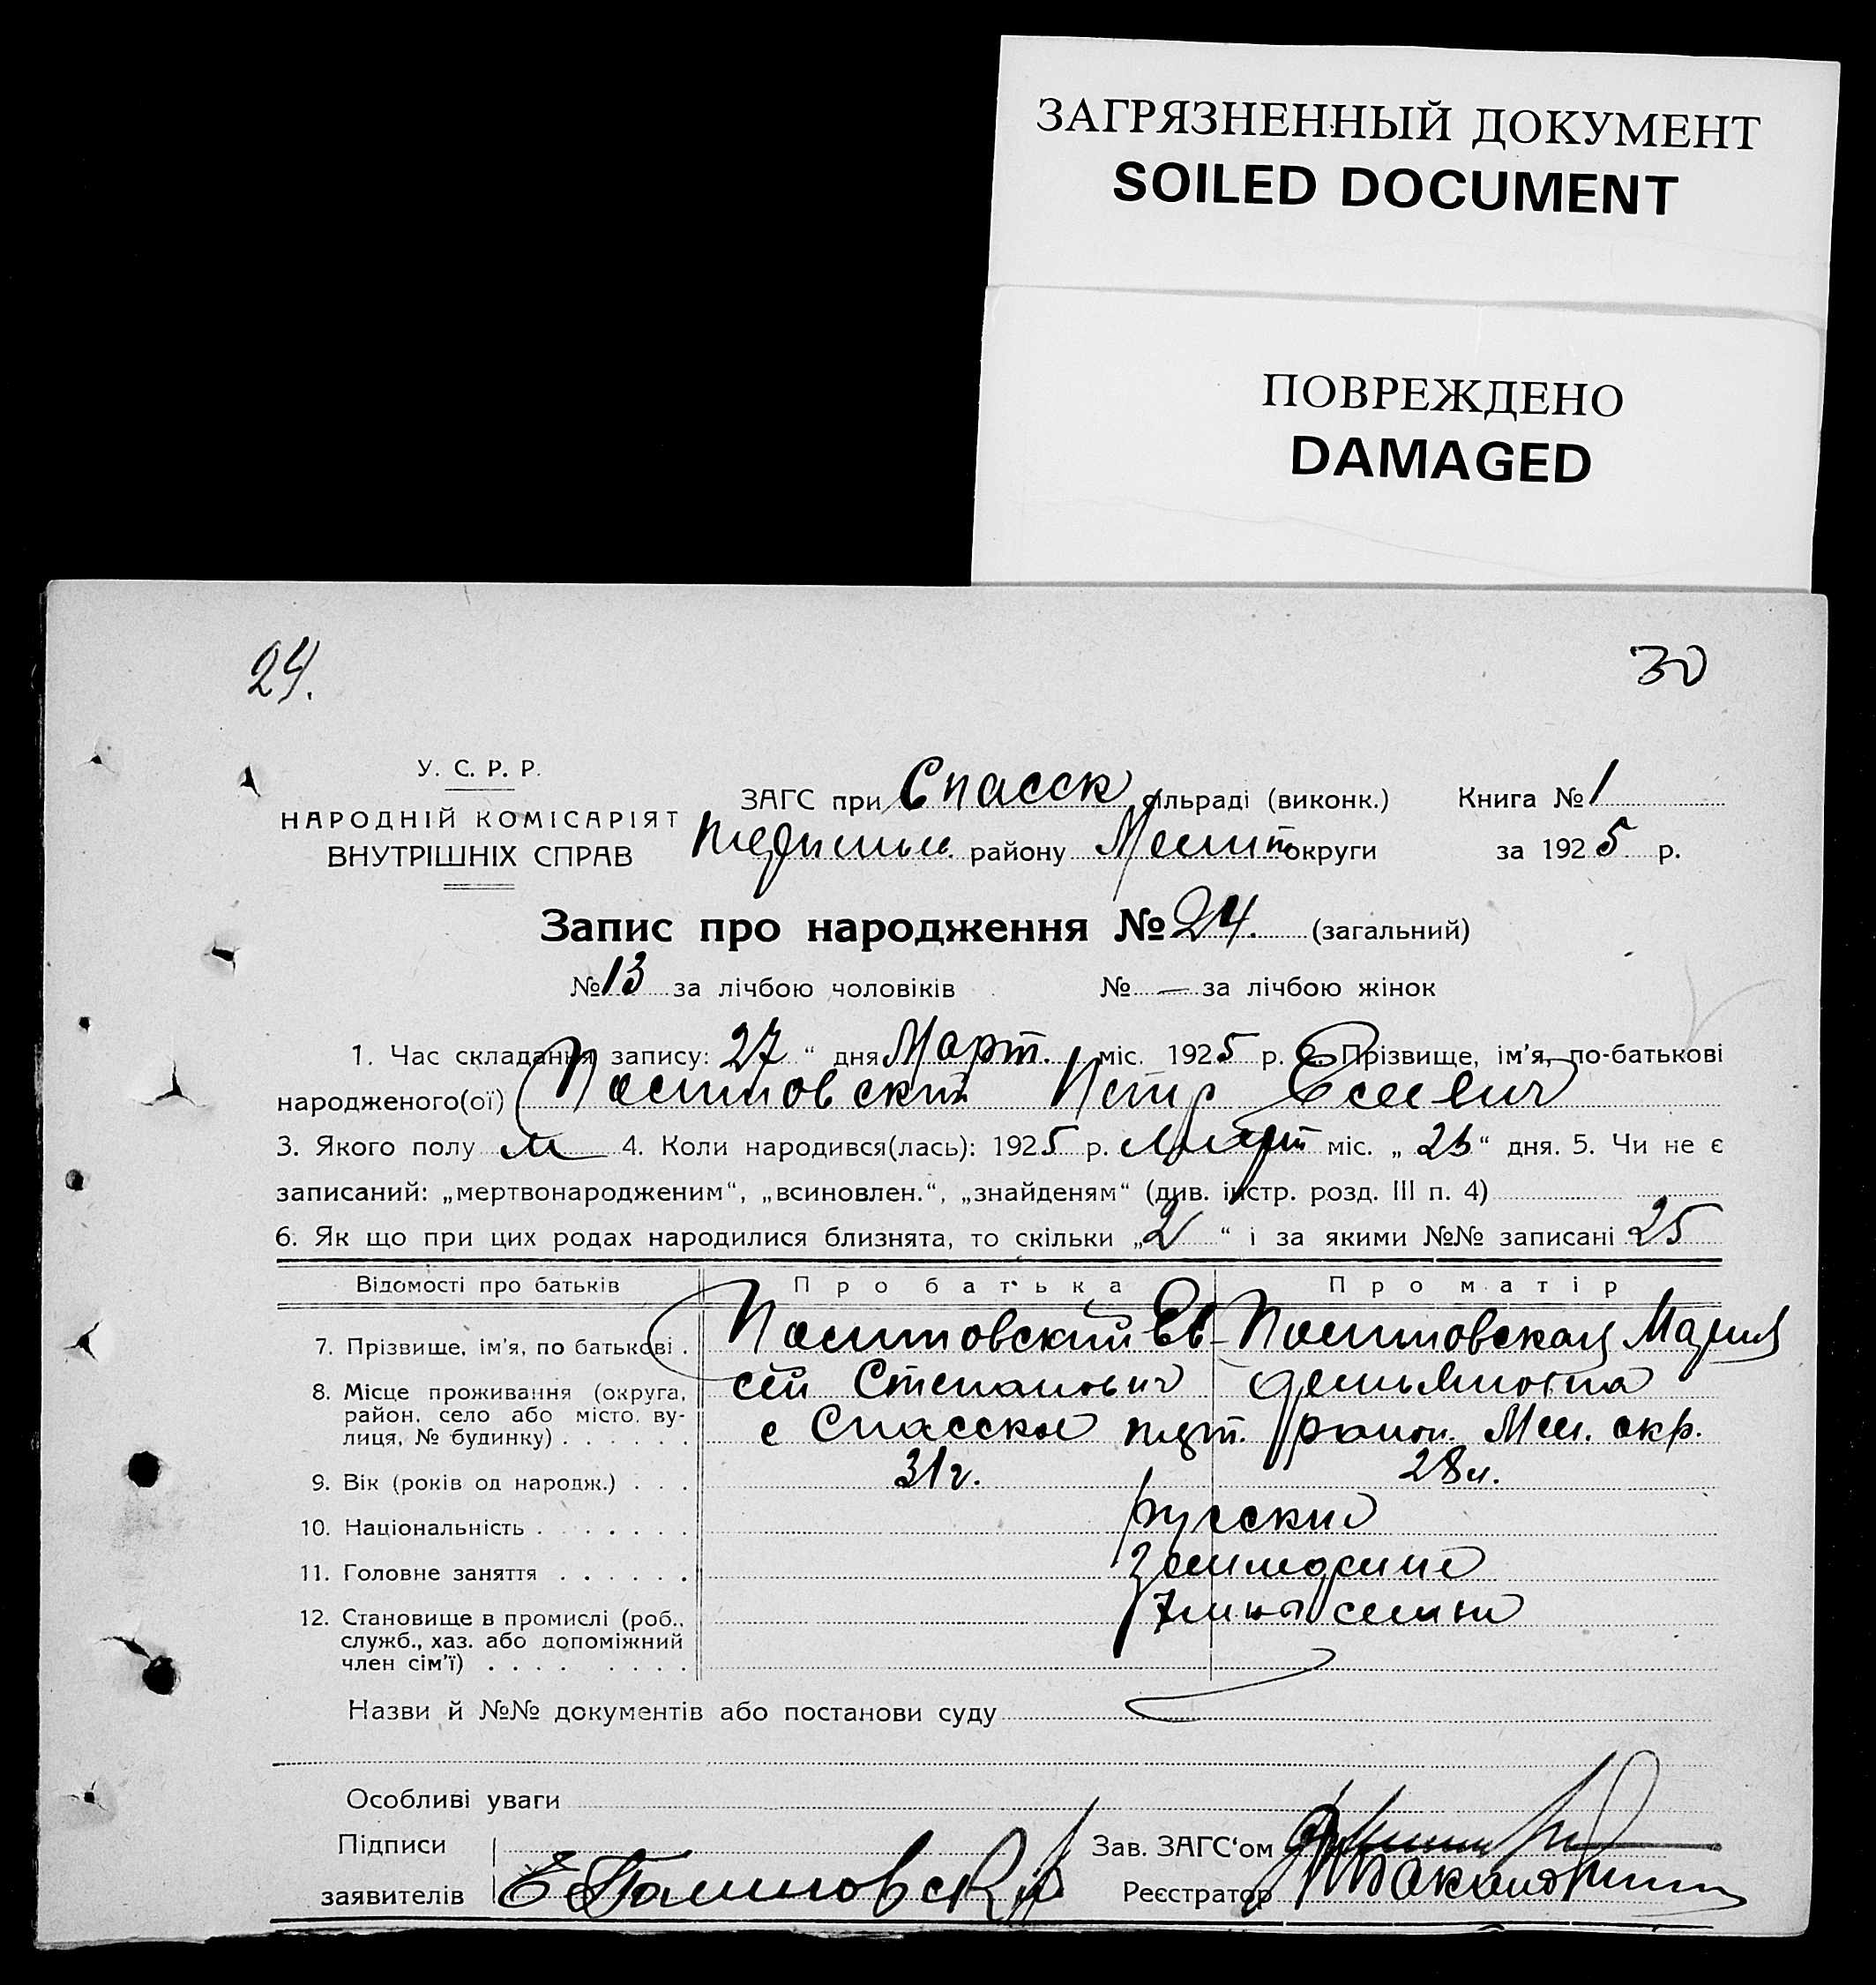 ЗАГРЯЗНЕННЫЙ ДОКУМЕНТ
SOILED DOCUMENT
ПОВРЕЖДЕНО
DAMAGED
24.
30
У. С. Р. Р.
НАРОДНІЙ КОМІСАРІЯТ
ВНУТРІШНІХ СПРАВ
ЗАГС при Спасск сільраді (виконк.) Книга № 1
району Мелит округи за 1925 р.
Запис про народження № 24. (загальний)
№ 13 за лічбою чоловіків № — за лічбою жінок
1. Час складання запису: 27 “ дня Март. міс. 1925 р. 2. Прізвище, ім’я, по-батькові
народженого(ої) Петр
3. Якого полу м 4. Коли народився(лась): 1925 р. Март міс. „ “ дня. 5. Чи не є
записаний: „мертвонародженим“, „всиновлен.“, „знайденям“ (див. інстр. розд. III п. 4)
6. Як що при цих родах народилися близнята, то скільки „2“ і за якими №№ записані 25
Відомості про батьків Про батька Про матір
7. Прізвище, ім’я, по батькові . Ев- Мария
8. Місце проживання (округа, сей Степанович
район, село або місто, ву- с Спасское район. Мел. окр.
лиця, № будинку) . . . . . .
9. Вік (років од народж.) . . . 31 г. 28 л.
10. Національність . . . . . . . русские
11. Головне заняття . . . . . .
12. Становище в промислі (роб., члены семьи
служб., хаз. або допоміжний
член сім’ї) . . . . . . . .
Назви й №№ документів або постанови суду
Особливі уваги
Підписи Зав. ЗАГС‘ом
заявителів Реєстратор